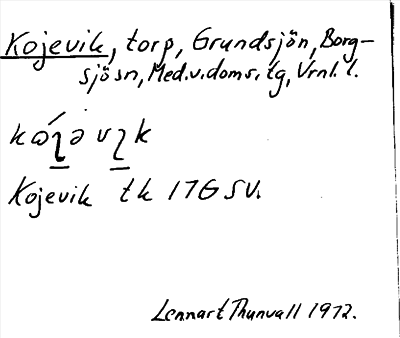 Kojevik, torp, Grundsjön, Borg-
sjö sn, Med.v.doms. tg, Vrnl. l.
Kojevik tk 17G SV.
Lennart Thunvall 1972.